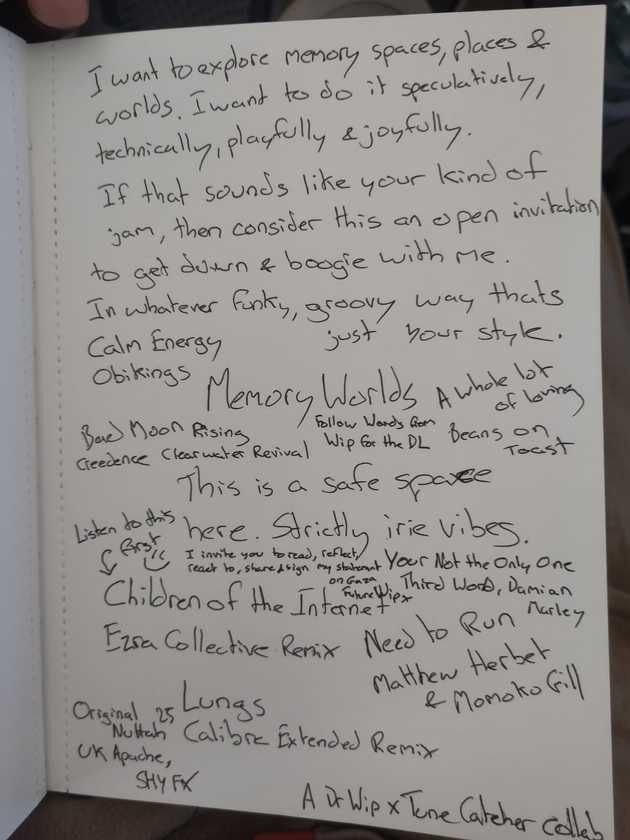 I want to explore memory spaces, places &
worlds. I want to do it speculatively,
technically, playfully & joyfully.
If that sounds like your kind of
jam, then consider this an open invitation
to get down & boogie with me.
In whatever funky, groovy way thats
just your style.
Calm Energy
Obikings
Memory Worlds
A whole lot
of loving
Beans on
Toast
Bad Moon Rising
Creedence Clearwater Revival
Follow Words from
Wip for the DL
This is a safe space
here. Strictly irie vibes.
Listen to this
first
I invite you to read, reflect,
react to, share & sign my statement
on Gaza
FutureWipx
Your Not the Only One
Third World, Damian
Marley
Children of the Internet
Ezra Collective Remix
Need to Run
Matthew Herbet
& Momoko Gill
Original 25
Nuttah
UK Apache,
SHY FX
Lungs
Calibre Extended Remix
A Dr Wip x Tune Catcher Collab